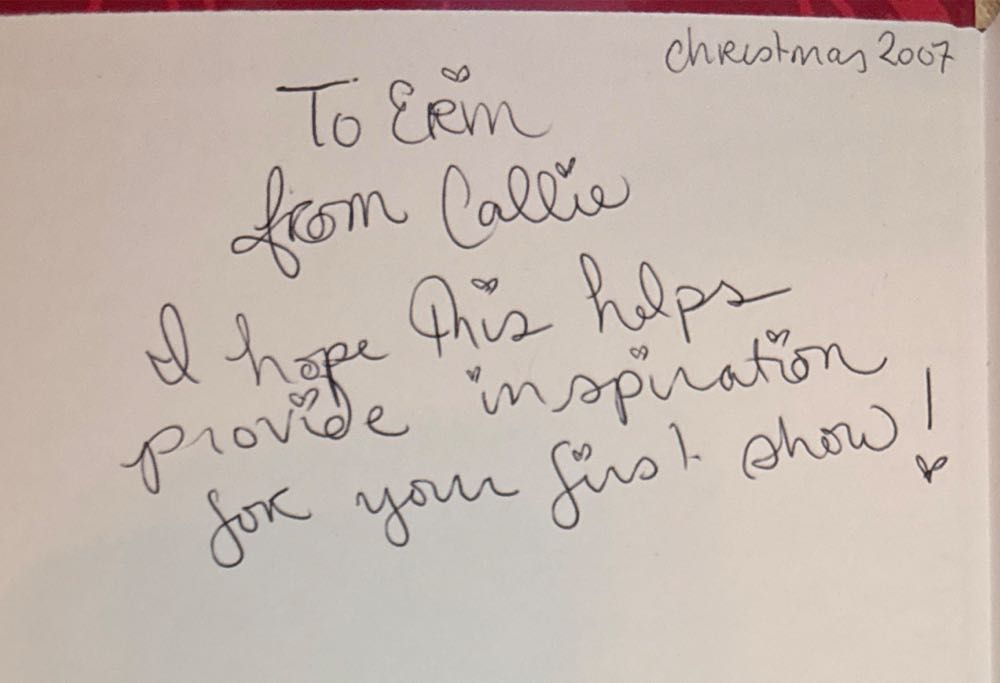 Christmas 2007
To Erin
from Callie
I hope this helps
provide inspiration
for your first show!